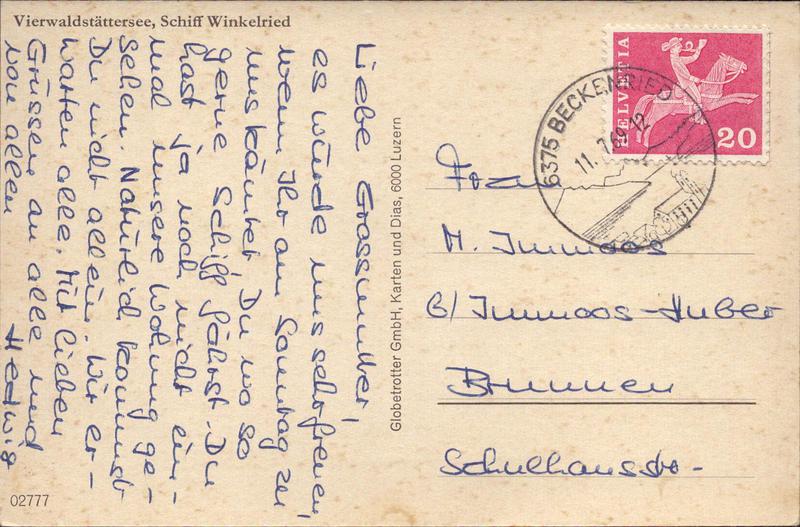 Vierwaldstättersee, Schiff Winkelried
Liebe Grossmutter,
es würde uns sehr freuen,
wenn Ihr am Sonntag zu
uns kämtet, Du wo so
gerne Schiff fährst. Du
hast ja noch nicht ein-
mal unsere Wohnung ge-
sehen. Natürlich kommst
Du nicht allein. Wir er-
warten alle. Mit lieben
Grüssen an alle und
von allen Hedwig
02777
Globetrotter GmbH, Karten und Dias, 6000 Luzern
HELVETIA
20
6375 BECKENRIED
11. 7. 69 . 12
Frau
M. Immoos
b/Immoos-Huber
Brunnen
Schulhausstr.